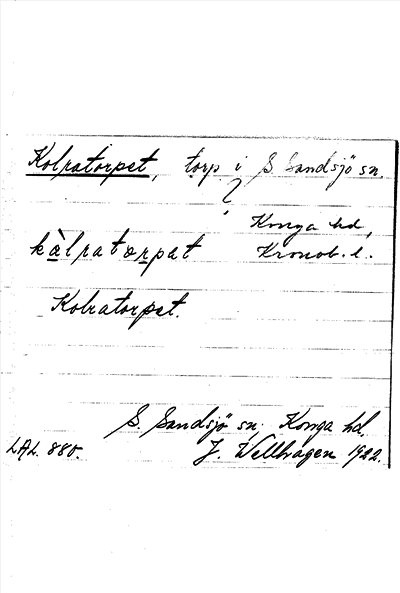 Kolratorpet, torp i S. Sandsjö sn.
?
Konga hd,
kàlratorpat Kronob. l.
Kolratorpet.
S. Sandsjö sn, Konga hd,
LAL. 880. J. Wellhagen 1922.